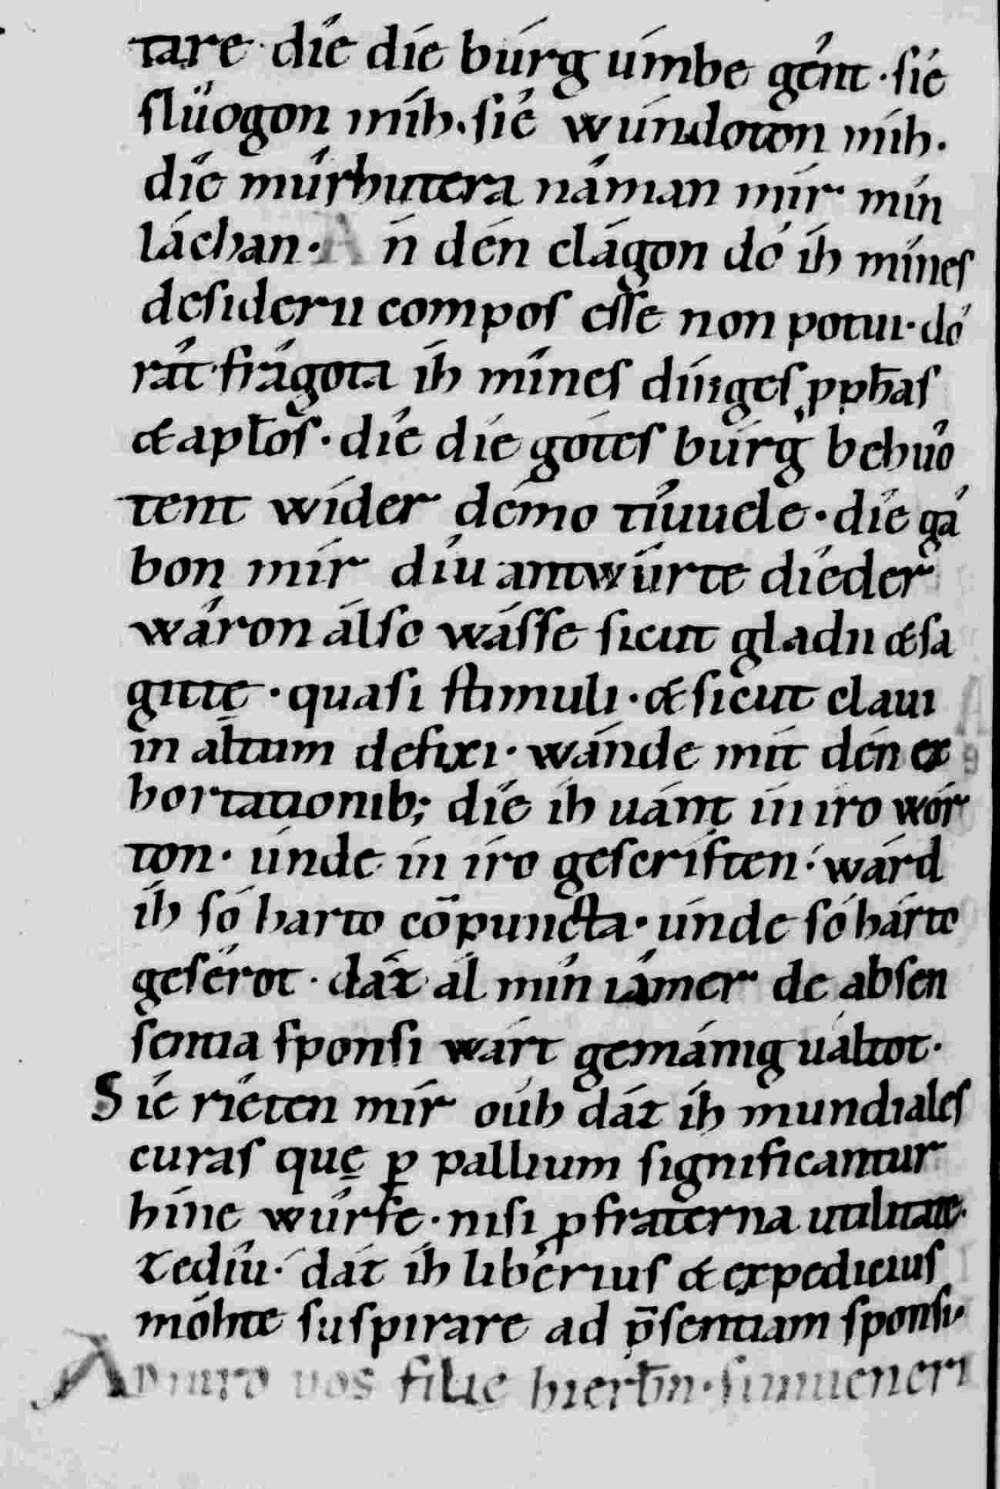 tare· díe díe búrg úmbe gént· sie
slüogon míh· síe wúndoton míh·
díe múrhutera náman mír mín
láchan· A ń dén clágon dó íh mínes
desiderii compos esse non potui· dó
rât frâgota íh mînes dínges ꝓph̄as
⁊ apl̄os· díe díe gótes búrg behûo
tent wíder démo tíuuele· díe gấ
bon mír díu antwúrte díeder
wâron álso wásse sicut gladii ⁊ sa
gittę· quasi stimuli· ⁊ sicut claui
in altum defixi· wánde mít dén ex
hortationib; díe íh uánt ín íro wór
ton· únde ín íro gescríften· wárd
íh só harto cōpuncta· únde só hárte
gesêrot· dáz ál mín iâmer de absen
sentia sponsi wárt gemánigualtot·
Síe ríeten mír óuh dáz íh mundiales
curas quę ꝑ pallium significantur
híne wúrfe· nisi ꝓ fraterna utilitate·
zediu· dáz íh liberius ⁊ expedicius
móhte suspirare ad p̄sentiam sponsi·
Adiuro uos filie hierl̄m· si inueneri